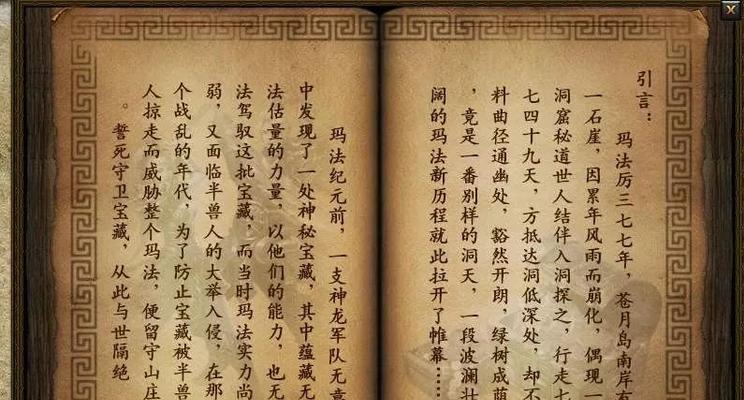 引言：
玛法厉三七七年，苍月岛南岸有
一石崖，因累年风雨而崩化，偶现一
洞窟秘道世人结伴入洞探之，行走七
七四十九天，方抵达洞低深处，却不
料曲径通幽处，豁然开朗，绿树成荫
，竟是一番别样的洞天，一段波澜壮
阔的玛法新历程就此拉开了帷幕……
玛法纪元前，一支神龙军队无意
中发现了一处神秘宝藏，其中蕴藏无
法估量的力量，以他们的能力，也无
法驾驭这批宝藏，而当时玛法实力尚
弱，又面临半兽人的大举入侵，在那
个战乱的年代，为了防止宝藏被半兽
人掠走而威胁整个玛法，便留守山庄
。誓死守卫宝藏，从此与世隔绝